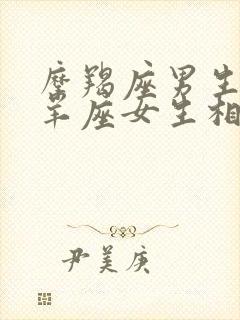 摩羯座男生
羊座女生相
尹美庚